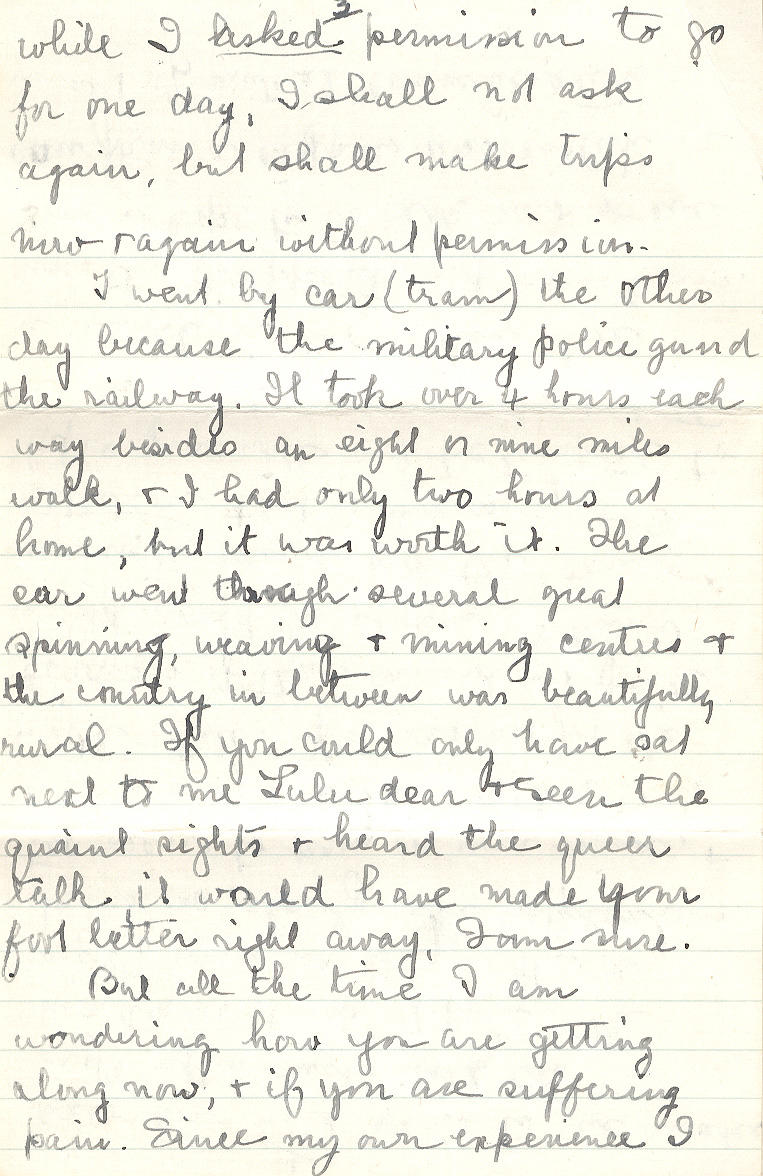 3
while I asked permission to go
for one day, I shall not ask
again, but shall make trips
now + again without permission.
I went by car (tram) the other
day because the military police guard
the railway. It took over 4 hours each
way besides an eight or nine miles
walk, + I had only two hours at
home, but it was worth it. The
car went through several great
spinning, weaving + mining centres +
the country in between was beautifully
rural. If you could only have sat
next to me Lulu dear + seen the
quaint sights + heard the queer
talk it would have made your
foot better right away, I am sure.
But all the time I am
wondering how you are getting
along now, + if you are suffering
pain. Since my own experience I